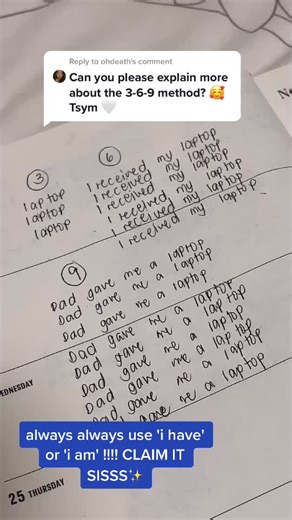 Reply to ohdeath's comment
Can you please explain more
about the 3-6-9 method? 🥰
Tsym 🤍
3
laptop
laptop
laptop
6
I received my laptop
I received my laptop
I received my laptop
I received my laptop
I received my laptop
I received my laptop
9
Dad gave me a laptop
Dad gave me a laptop
Dad gave me a laptop
Dad gave me a laptop
Dad gave me a laptop
Dad gave me a laptop
Dad gave me a laptop
Dad gave me a laptop
Dad gave me a laptop
EDNESDAY
always always use 'i have'
or 'i am' !!!! CLAIM IT
SISSS✨
25 THURSDAY